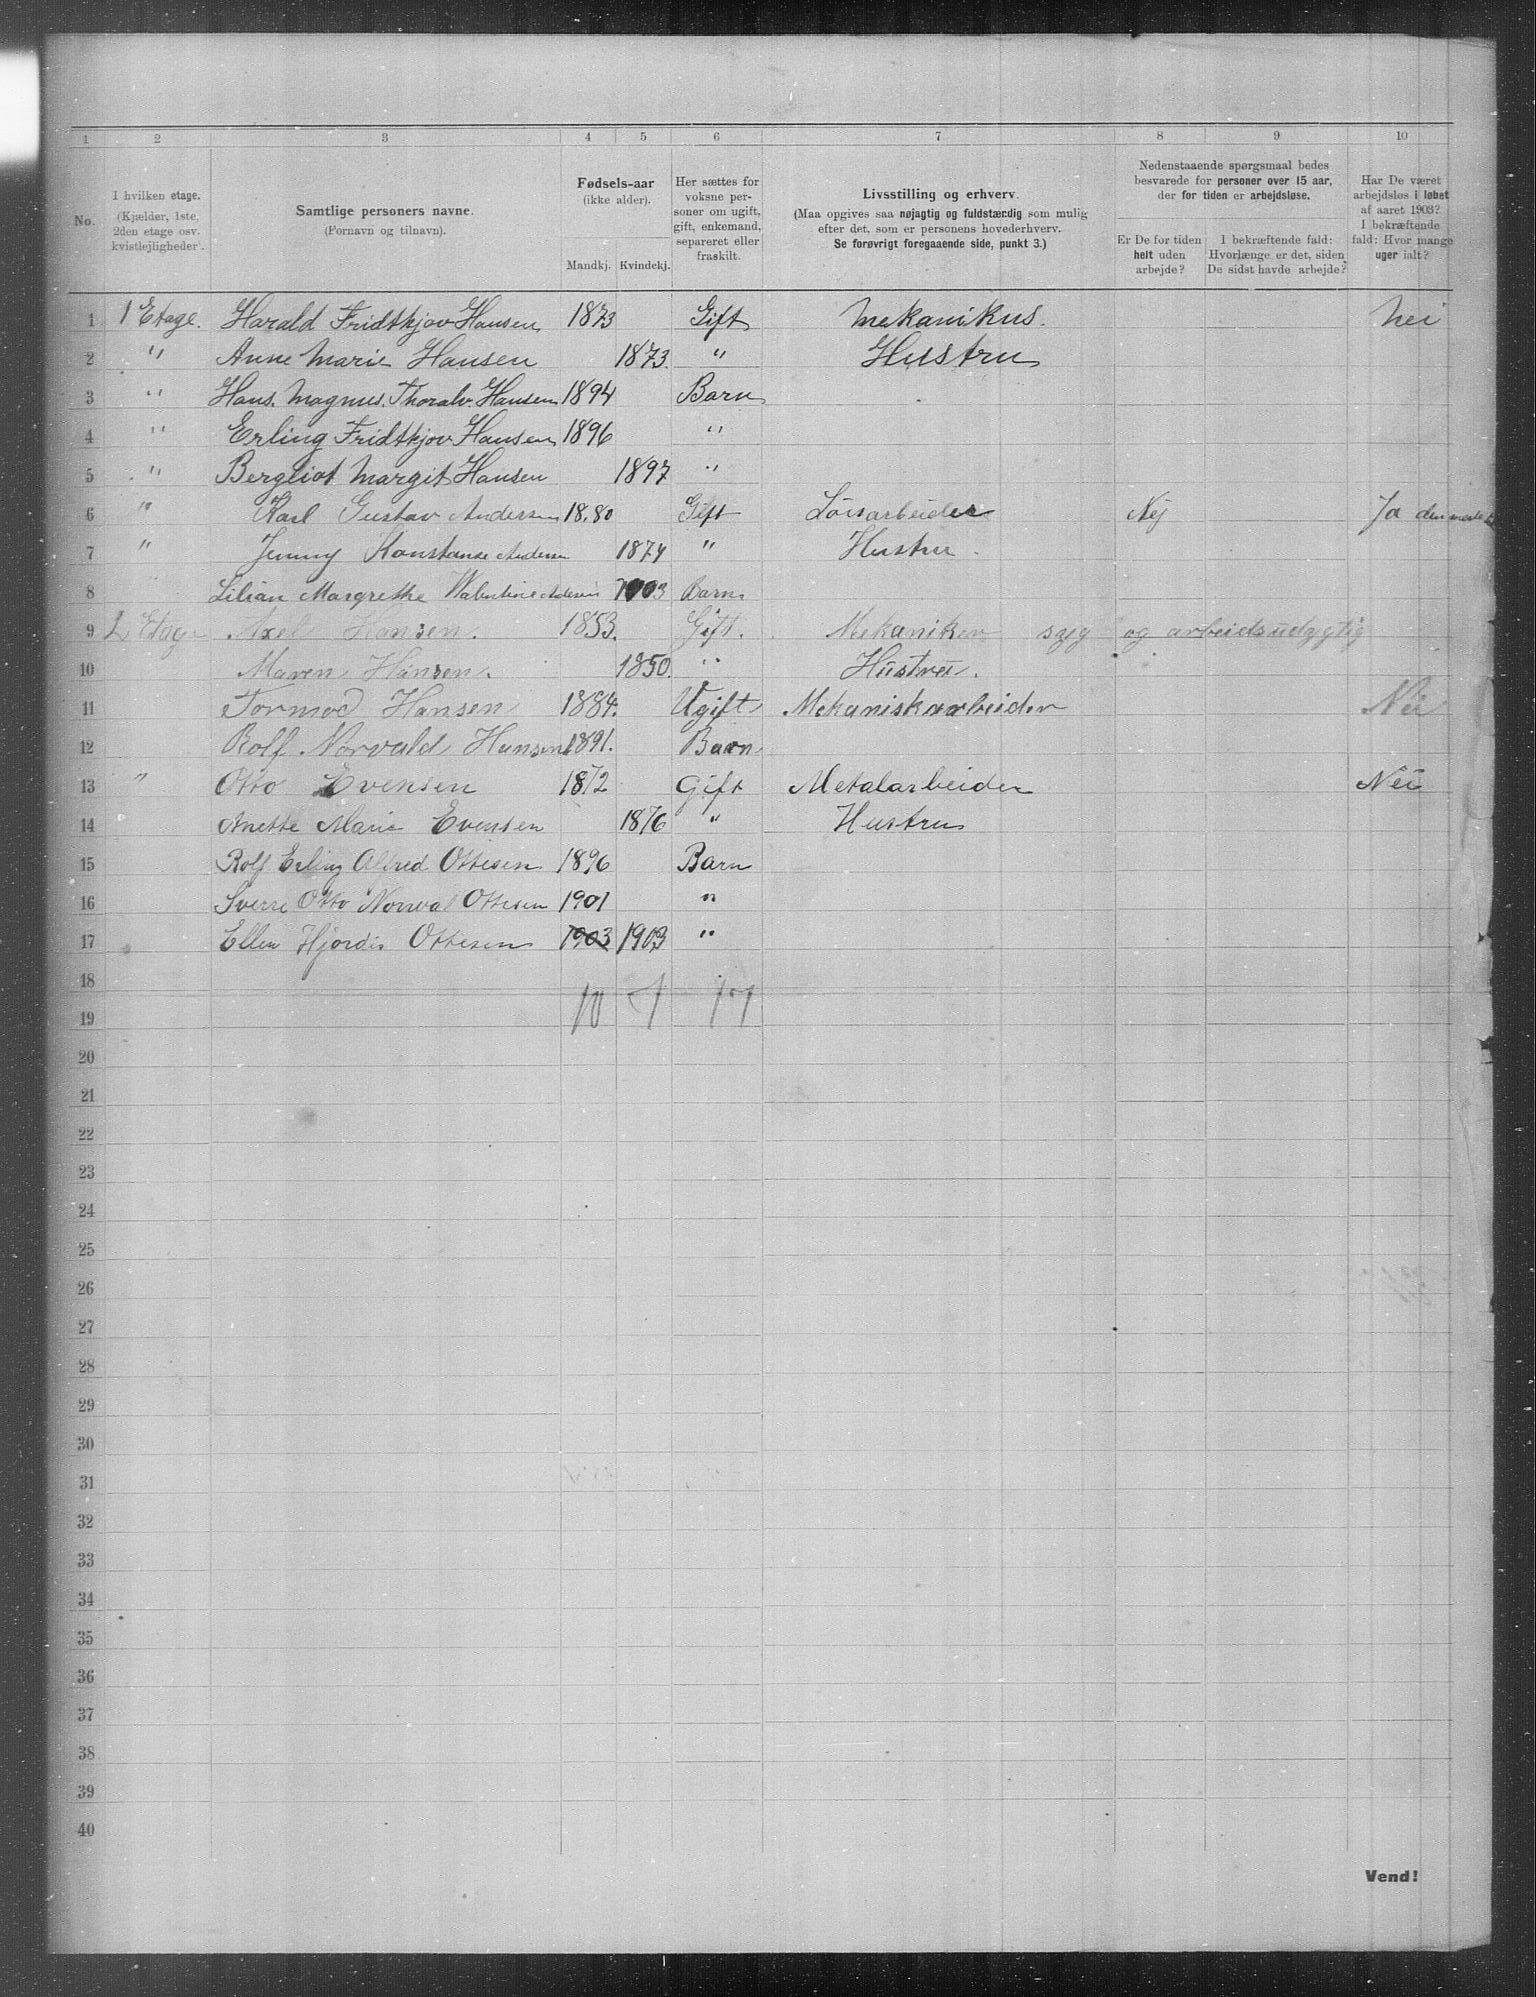 1 2 3 4 5 6 7 8 9 10
No.
I hvilken etage.
(Kjælder, 1ste,
2den etage osv.
kvistlejligheder).
Samtlige personers navne.
(Fornavn og tilnavn).
Fødsels-aar
(ikke alder).
Mandkj. Kvindekj.
Her sættes for
voksne per-
soner om ugift,
gift, enkemand,
separeret eller
fraskilt.
Livsstilling og erhverv.
(Maa opgives saa nøjagtig og fuldstærdig som mulig
efter det, som er personens hovederhverv.
Se forøvrigt foregaaende side, punkt 3.)
Nedenstaaende spørgsmaal bedes
besvarede for personer over 15 aar,
der for tiden er arbejdsløse.
Er De for tiden
helt uden
arbejde?
I bekræftende fald:
Hvorlænge er det, siden
De sidst havde arbejde?
Har De været
arbejdsløs i løbet
af aaret 1903?
I bekræftende
fald: Hvor mange
uger ialt?
1 1 Etage. Harald Fridtkjov Hansen 1873 Gift Mekanikus. Nei
2 " Anne Marie Hansen 1873. " Hustru
3 " Hans. Magnus. Thoralv. Hansen 1894 Barn
4 " Erling Fridtkjov Hansen 1896 "
5 " Bergliot Margit Hansen 1897 "
6 " Karl Gustav Andersen 18.80 Gift Løisarbeider Nej Ja den meste
7 " Jenny Konstanse Andersen 1874 " Hustru.
8 Lilian Margrethe Valentine Andersen 1903 Barn.
9 2 Etage Axel Hansen. 1853. Gift. Mekaniker syg og arbeidsudygtig
10 Maren Hansen. 1850. " Hustru.
11 Tormod Hansen 1884. Ugift Mekaniskarbeider Nei
12 Rolf Norvald Hansen 1891. Barn
13 " Otto Evensen 1872 Gift Metalarbeider Nei
14 Anette Marie Evensen 1876 " Hustru
15 Rolf Erling Alfred Ottesen 1896 Barn
16 Sverre Otto Norval Ottesen 1901 "
17 Ellen Hjordis Ottesen 1903 1903 "
18
10 7 17
19
20
21
22
23
24
25
26
27
28
29
30
31
32
33
34
35
36
37
38
39
40
Vend!